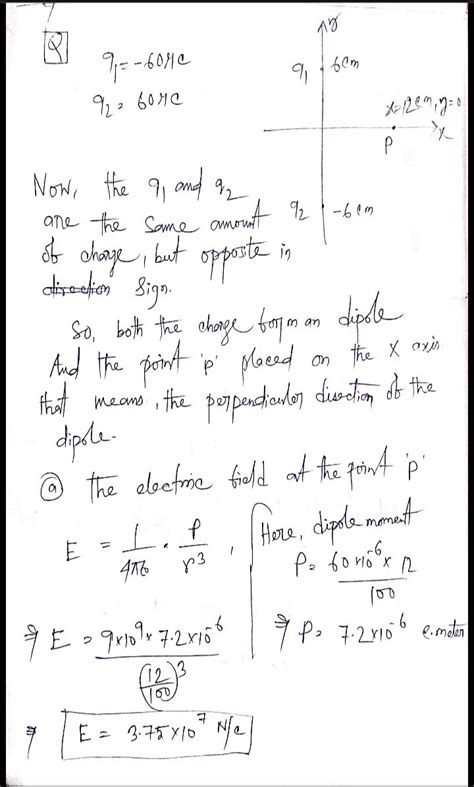 Q
q₁ = -60μC
q₂ = 60μC
y
q₁ 6cm
x=12cm, y=0
P
x
q₂ -6cm
Now, the q₁ and q₂
are the same amount
of charge, but opposite in
direction sign.
So, both the charge form an dipole
And the point 'p' placed on the x axis
that means, the perpendicular direction of the
dipole.
(a) the electric field at the point 'p'
E = 1/4πε₀ · P/r³,
Here, dipole moment
P = 60×10⁻⁶ × 12/100
⇒ P = 7.2×10⁻⁶ c.meter
⇒ E = 9×10⁹×7.2×10⁻⁶/(12/100)³
⇒ E = 3.75×10⁷ N/c